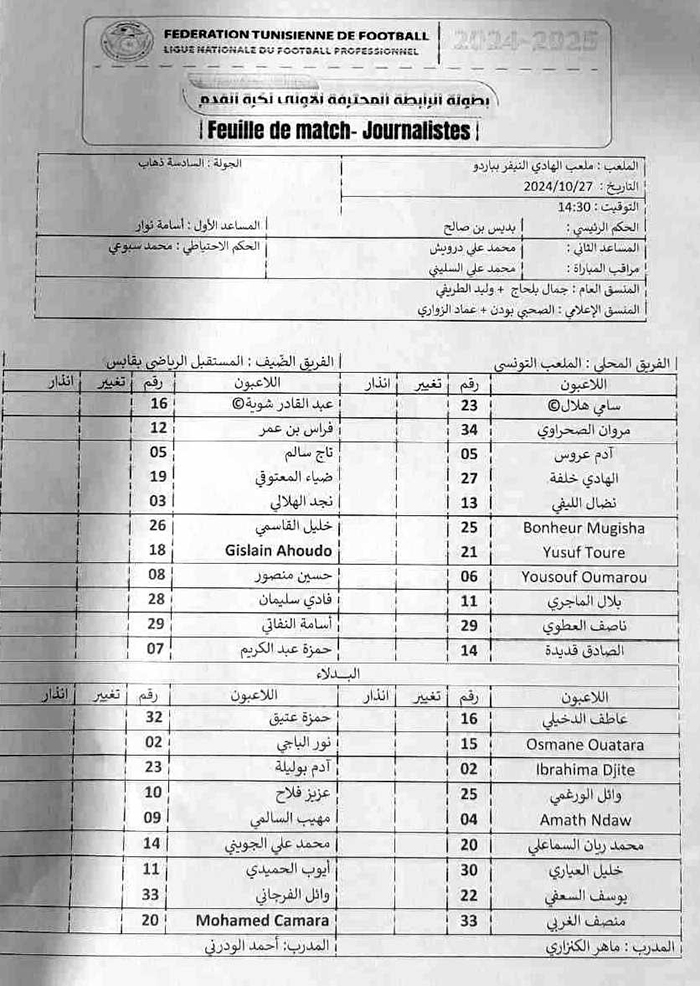 FEDERATION TUNISIENNE DE FOOTBALL
LIGUE NATIONALE DU FOOTBALL PROFESSIONNEL
2024-2025
بطولة الرابطة المحترفة الأولى لكرة القدم
Feuille de match- Journalistes
الملعب : ملعب الهادي النيفر بباردو الجولة : السادسة ذهاب
التاريخ : 2024/10/27
التوقيت : 14:30
الحكم الرئيسي : بديس بن صالح المساعد الأول : أسامة نوار
المساعد الثاني : محمد علي درويش الحكم الاحتياطي : محمد سبوعي
مراقب المباراة : محمد علي السليني
المنسق العام : جمال بلحاج + وليد الطريفي
المنسق الإعلامي : الصحبي بودن + عماد الزواري
الفريق المحلي : الملعب التونسي الفريق الضّيف : المستقبل الرياضي بقابس
اللاعبون رقم تغيير انذار اللاعبون رقم تغيير انذار
سامي هلال© 23 عبد القادر شوية© 16
مروان الصحراوي 34 فراس بن عمر 12
آدم عروس 05 تاج سالم 05
الهادي خلفة 27 ضياء المعتوقي 19
نضال الليفي 13 نجد الهلالي 03
Bonheur Mugisha 25 خليل القاسمي 26
Yusuf Toure 21 Gislain Ahoudo 18
Yousouf Oumarou 06 حسين منصور 08
بلال الماجري 11 فادي سليمان 28
ناصف العطوي 29 أسامة النفاتي 29
الصادق قديدة 14 حمزة عبد الكريم 07
البــدلاء
اللاعبون رقم تغيير انذار اللاعبون رقم تغيير انذار
عاطف الدخيلي 16 حمزة عتيق 32
Osmane Ouatara 15 نور الباجي 02
Ibrahima Djite 02 آدم بوليلة 23
وائل الورغمي 25 عزيز فلاح 10
Amath Ndaw 04 مهيب السالمي 09
محمد ريان السماعلي 20 محمد علي الجويني 14
خليل العياري 30 أيوب الحميدي 11
يوسف السعفي 22 وائل الفرجاني 33
منصف الغربي 33 Mohamed Camara 20
المدرب : ماهر الكنزاري المدرب: أحمد الودرني